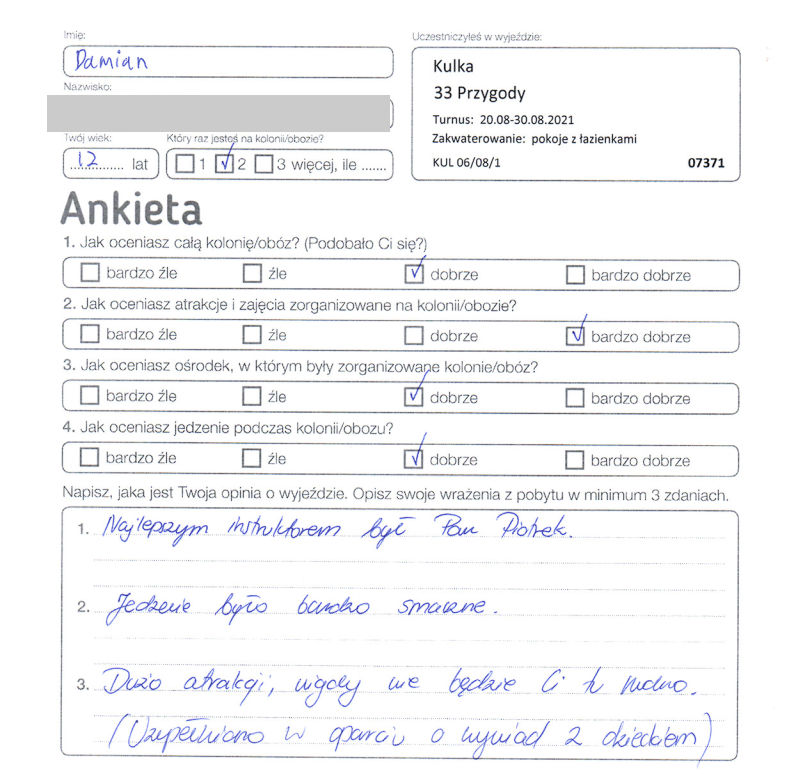 Imię:
Uczestniczyłeś w wyjeździe:
Damian
Kulka
Nazwisko:
33 Przygody
Turnus: 20.08-30.08.2021
Twój wiek:
Który raz jesteś na kolonii/obozie?
Zakwaterowanie: pokoje z łazienkami
12 lat
1 2 3 więcej, ile .......
KUL 06/08/1
07371
Ankieta
1. Jak oceniasz całą kolonię/obóz? (Podobało Ci się?)
bardzo źle źle dobrze bardzo dobrze
2. Jak oceniasz atrakcje i zajęcia zorganizowane na kolonii/obozie?
bardzo źle źle dobrze bardzo dobrze
3. Jak oceniasz ośrodek, w którym były zorganizowane kolonie/obóz?
bardzo źle źle dobrze bardzo dobrze
4. Jak oceniasz jedzenie podczas kolonii/obozu?
bardzo źle źle dobrze bardzo dobrze
Napisz, jaka jest Twoja opinia o wyjeździe. Opisz swoje wrażenia z pobytu w minimum 3 zdaniach.
1. Najlepszym instruktorem był Pan Piotrek.
2. Jedzenie było bardzo smaczne.
3. Dużo atrakcji, nigdy nie będzie Ci tu nudno.
(Uzupełniono w oparciu o wywiad z dzieckiem)